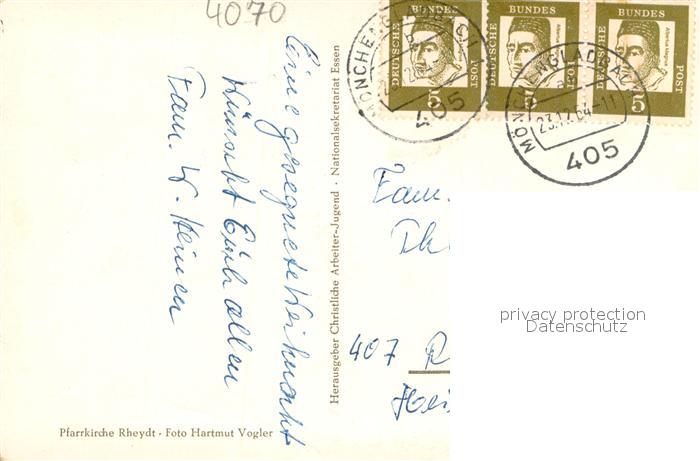 4070
Eine gesegnete Weihnacht
Wünscht Euch allen
Fam. W. Heinen
Pfarrkirche Rheydt · Foto Hartmut Vogler
Herausgeber Christliche Arbeiter-Jugend · Nationalsekretariat Essen
DEUTSCHE BUNDES POST
5
DEUTSCHE BUNDES POST
5
DEUTSCHE BUNDES POST
5
Albertus Magnus
MÖNCHENGLADBACH
405
MÖNCHENGLADBACH
23.12.64-11
405
Fam.
407 R
privacy protection
Datenschutz